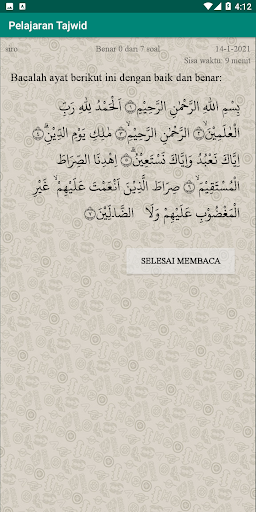 4:12
Pelajaran Tajwid
airo Benar 0 dari 7 soal 14-1-2021
Sisa waktu: 9 menit
Bacalah ayat berikut ini dengan baik dan benar:
بِسْمِ اللّٰهِ الرَّحْمٰنِ الرَّحِيْمِ۝١ اَلْحَمْدُ لِلّٰهِ رَبِّ
الْعٰلَمِيْنَۙ۝٢ الرَّحْمٰنِ الرَّحِيْمِۙ۝٣ مٰلِكِ يَوْمِ الدِّيْنِۗ۝٤
اِيَّاكَ نَعْبُدُ وَاِيَّاكَ نَسْتَعِيْنُۗ۝٥ اِهْدِنَا الصِّرَاطَ
الْمُسْتَقِيْمَۙ۝٦ صِرَاطَ الَّذِيْنَ اَنْعَمْتَ عَلَيْهِمْۙ غَيْرِ
الْمَغْضُوْبِ عَلَيْهِمْ وَلَا الضَّاۤلِّيْنَ۝٧
SELESAI MEMBACA